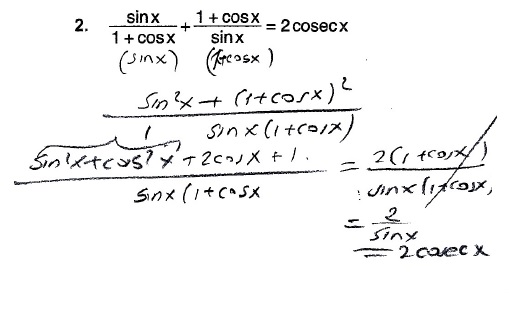 2. sinx/(1+cosx) + (1+cosx)/sinx = 2cosecx
(sinx) (1+cosx)
(sin²x + (1+cosx)²)/(sinx(1+cosx))
1
(sin²x+cos²x+2cosx+1.)/(sinx(1+cosx) = 2(1+cosx)/(sinx(1+cosx)
= 2/sinx
= 2cosecx